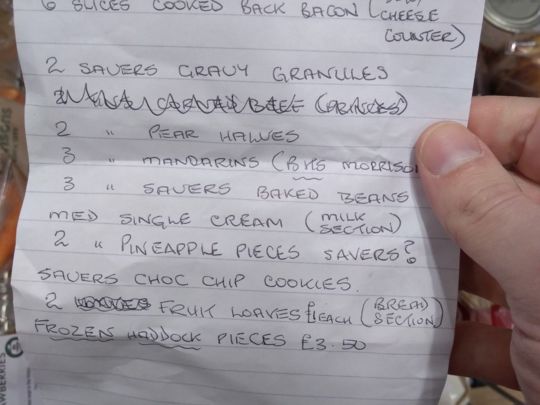 6 SLICES COOKED BACK BACON (
CHEESE
COUNTER)
2 SAVERS GRAVY GRANULES
2 " PEAR HALVES
3 " MANDARINS (BITS MORRISO
3 " SAVERS BAKED BEANS
MED SINGLE CREAM (MILK SECTION)
2 " PINEAPPLE PIECES SAVERS?
SAVERS CHOC CHIP COOKIES.
2 FRUIT LOAVES £1EACH (BREAD SECTION)
FROZEN HADDOCK PIECES £3.50